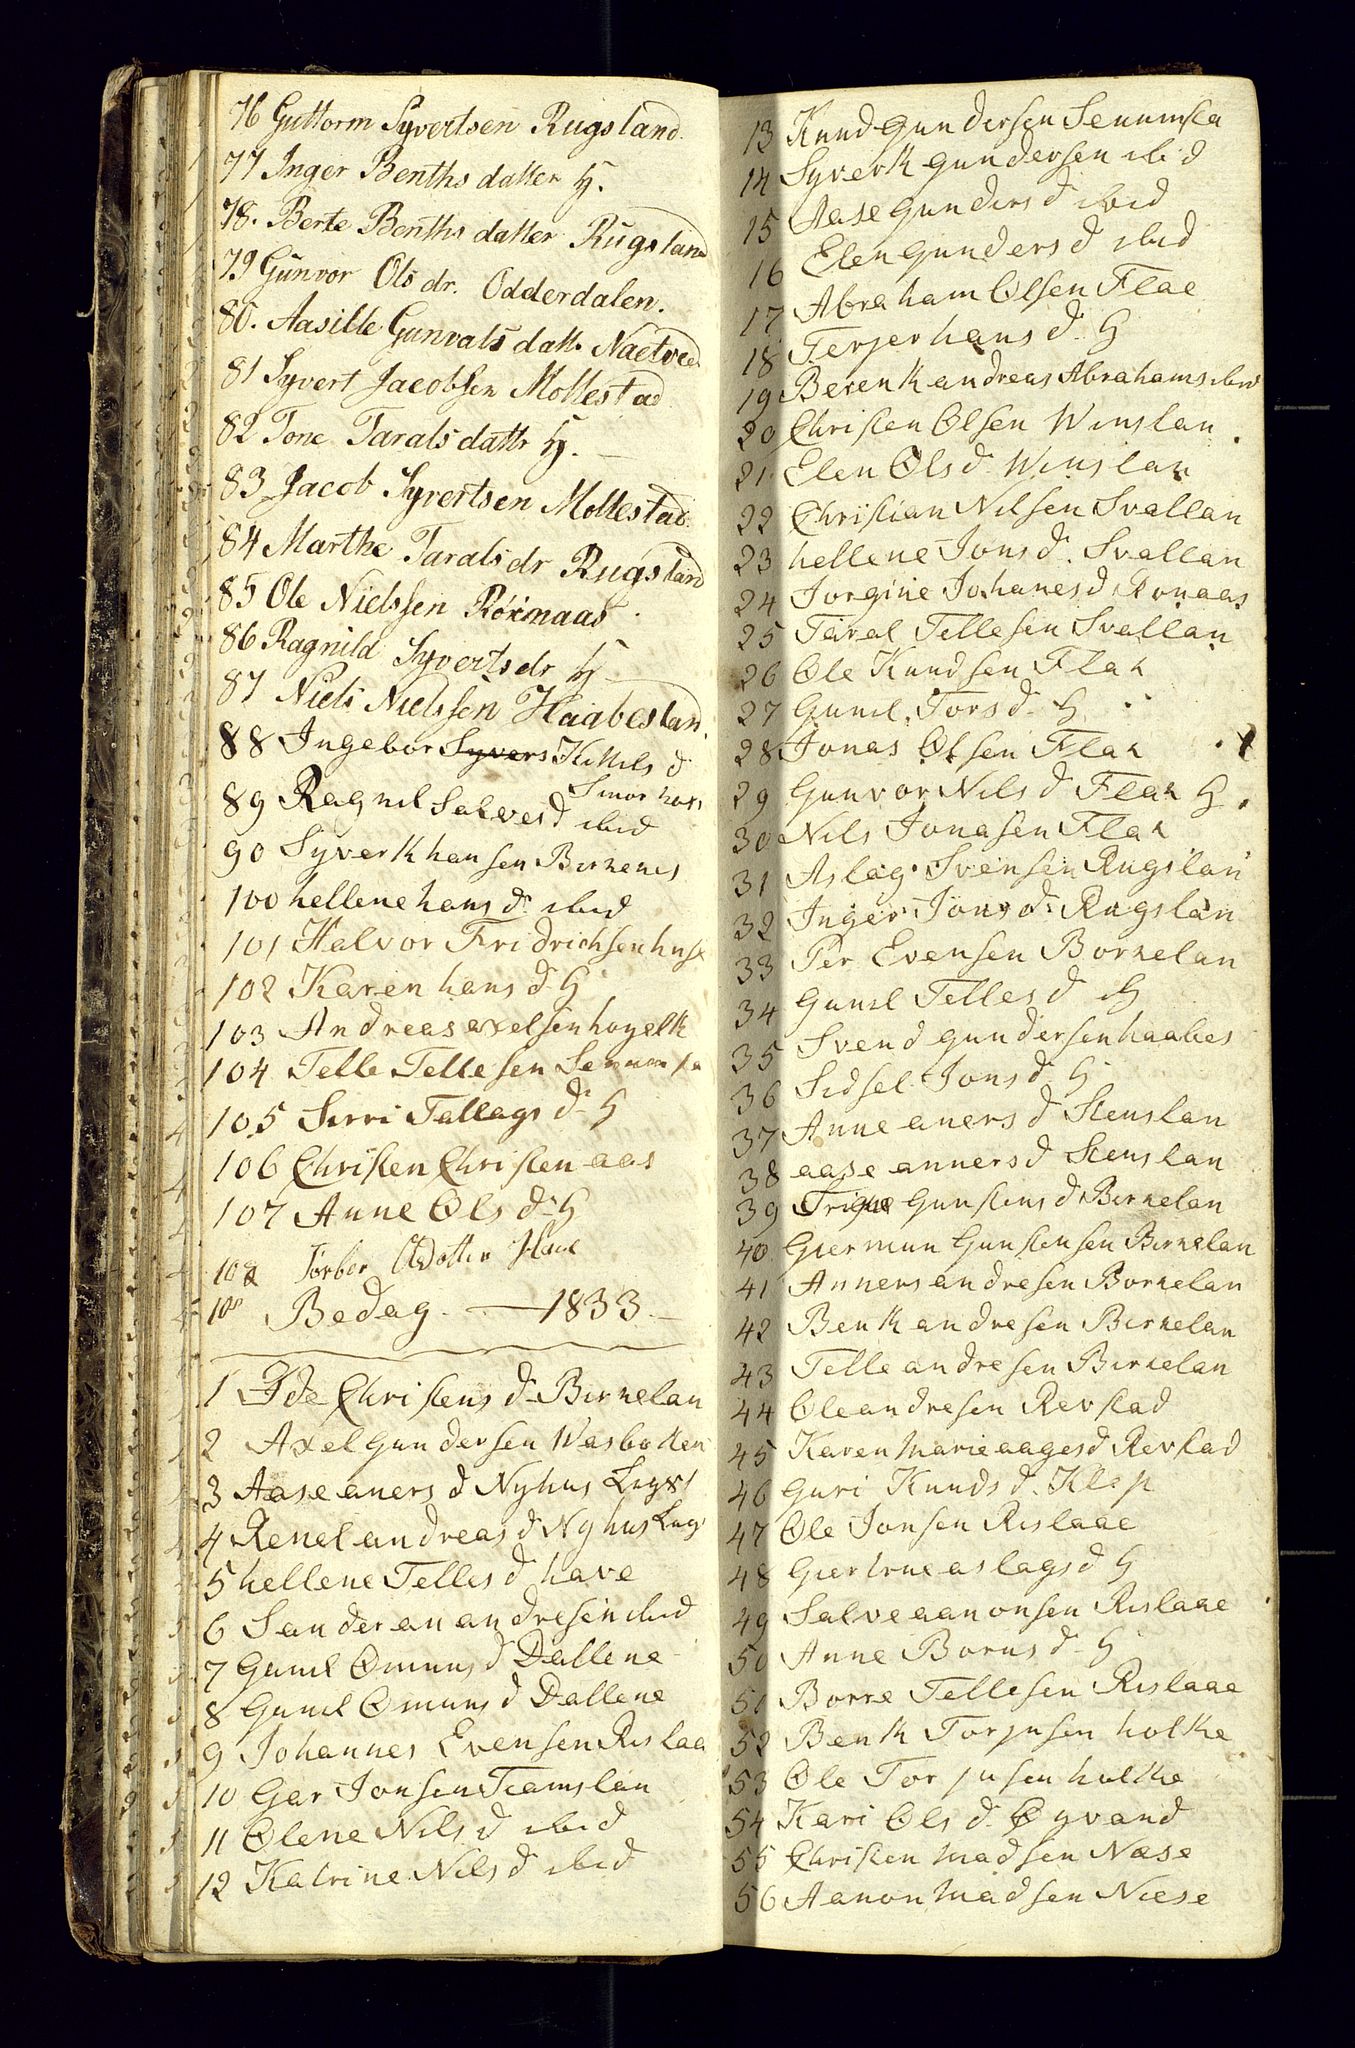 76 Guttorm Syvertsen Rugsland.
77 Inger Benths datter H.
78. Berte Benths datter Rugsland
79 Gunvor Ols dr. Odderdalen.
80. Aasille Gunvals datt. Naetved
81 Syvert Jacobsen Mollestad
82 Tone Tarals dattr H.
83 Jacob Syvertsen Mollestad.
84 Marthe Tarals dr Rugsland
85 Ole Nielssen
86 Ragnild Syverts dr H
87 Niels Nielssen Haabesland.
88 Ingebor Syvers Kittils d
89 Ragnil Salves d ibid
90 Syvert hansen Berkenes
100 hellene hans d ibid
101 Halvor Fridrichsen
102 Karen hans d H
103 Andreas axelsen
104 Telle Tellesen
105 Sirri Tallags d H
106 Christen Christen aas
107 Anne Ols d H
108
10 Bedag. — 1833 —
1 Ide Christens d Berkelan
2 Axel Gundersen Wasboken
3 Aase aners d Nyhus
4 Renel andreas d Nyhus
5 hellene Telles d have
6 Sanderan andresen ibid
7 Gunil Omuns d Dallene
8 Gunil Omuns d Dallene
9 Johannes Evensen Rislaa
10 Ger Jonsen Teamslan
11 Olene Nils d ibid
12 Katrine Nils d ibid
13 Knud Gundersen Senumsta
14 Syvert gundersen ibid
15 Aase gunders d ibid
16 Elen gunders d ibid
17 Abraham Olsen Flae
18 Terjer hans d H
19 Berent andreas Abrahams ibid
20 Christen Olsen Winslan.
21 Elen Ols d Winslan
22 Christian Nilsen Svallan
23 hellene Jons d. Svallan
24 Jorgine Johanes d Ronaas
25 Taral Tellesen Svallan
26 Ole Knudsen Flak
27 Gunil Tors d H
28 Jonas Olsen Flak
29 Gunvor Nils d Flak H.
30 Nils Jonasen Flak
31 Aslag Svensen Rugslan
32 Inger Jons d Rugslan
33 Per Evensen Borkelan
34 Gunil Telles d H
35 Svend gundersen haabes
36 Sidsel Jons d H
37 Anne aners d Stenslan
38 aase anners d Stenslan
39 Trigue Gunstens d Berkelan
40 Giermun Gunstensen Berkelan
41 Anners andresen Borkelan
42 Bent andresen Berkelan
43 Telle andresen Berkelan
44 Ole andresen Revstad
45 Karen Marie aages d Revstad
46 Guri Knuds d. Klep
47 Ole Jonsen Rislaae
48 Giertrue aslags d H
49 Salve aanonsen Rislaae
50 Anne Borus d H
51 Borre Tellesen Rislaae
52 Bent Torjusen holthe
53 Ole Torjusen holthe
54 Kari Ols d. Oyvand
55 Christen Madsen Næse
56 Aanon Madsen Niese